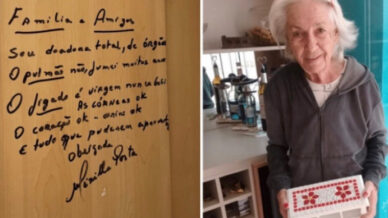 Família e Amigos
Sou doadora total, de órgãos
O pulmão não, fumei muitos anos
O fígado é virgem nunca bebi
As córneas ok
O coração ok - rins ok
E tudo que puderem aproveitar
Obrigada